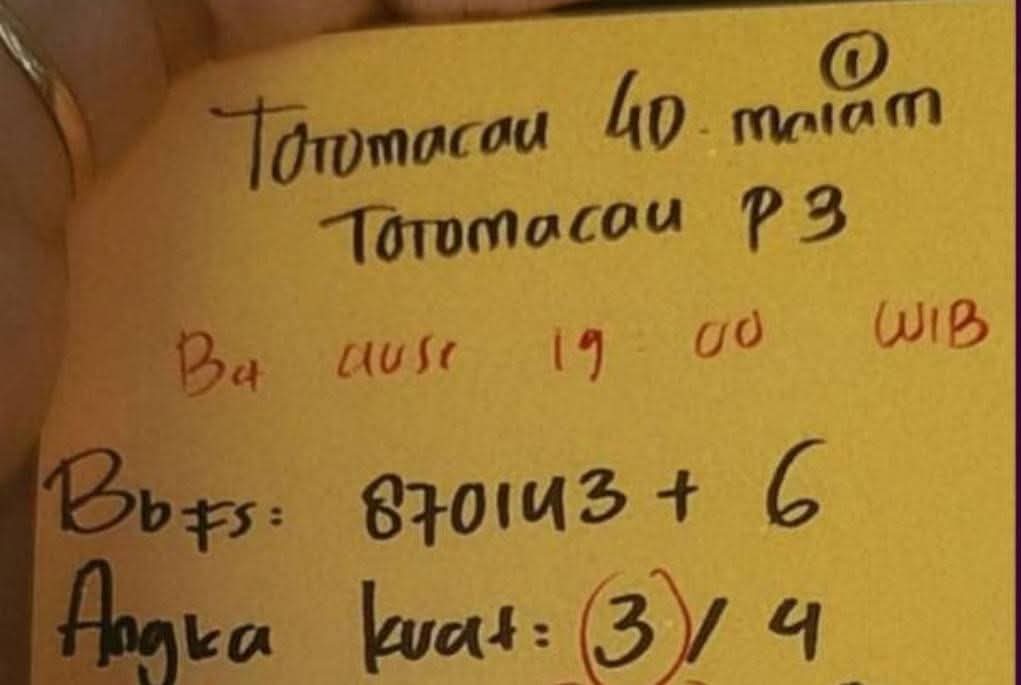 ①
Totomacau 4D malam
Totomacau P3
19:00 WIB
Bbfs: 870143 + 6
Angka kuat: 3 / 4